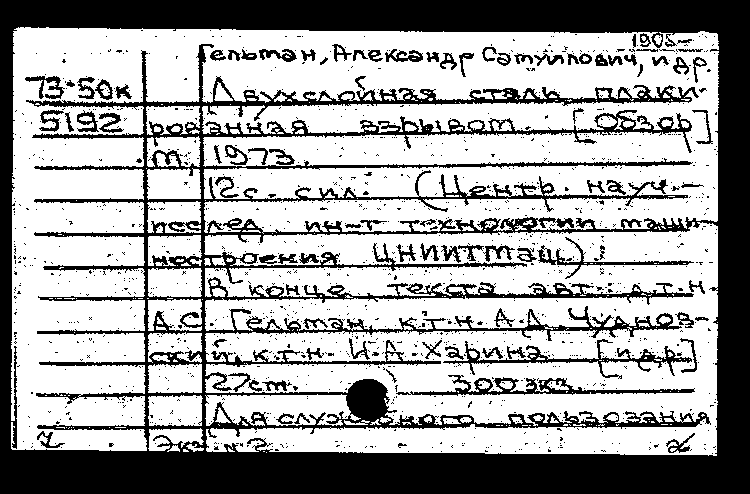 1905-
Гельман, Александр Самуилович, и др.
73-50к Двухслойная сталь, плаки-
5192 рованная взрывом. [Обзор]
М., 1973.
12 с. с ил. (Центр. науч.-
исслед. ин-т технологии маши-
ностроения ЦНИИТМАШ).
В конце текста авт.: д.т.н.
А.С. Гельман, к.т.н. А.Д. Чуднов-
ский, к.т.н. И.А. Харина [и др.]
27 см. 300 экз.
Для служебного пользования
Экз. № 2.